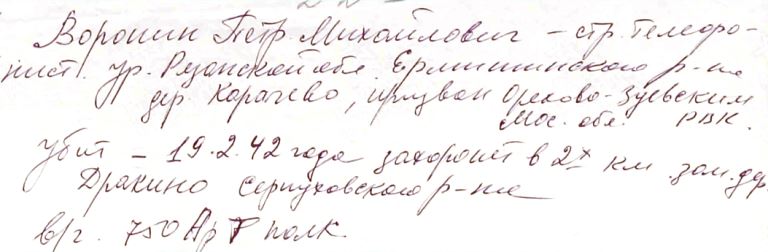 Воронин Петр Михайлович – стр. телефо-
нист. ур. Рязанской обл. Ермишинского р-на
дер Карачево, призван Орехово-Зуевским
Мос. обл. РВК.
Убит – 19.2.42 года захоронен в 2х км. зап. дер.
Дракино Серпуховского р-на
в/г. 750 Ар Т полк.